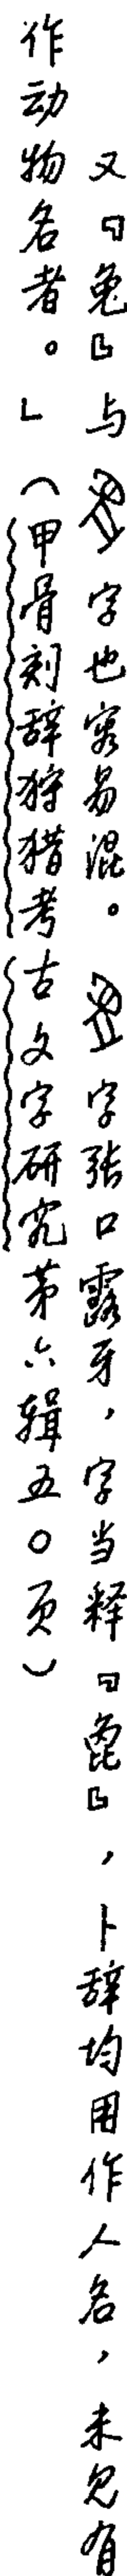 又『兔』与字也容易混。字张口露牙，字当释『㲋』，卜辞均用作人名，未见有
作动物名者。」（甲骨刻辞狩猎考古文字研究第六辑五〇页）